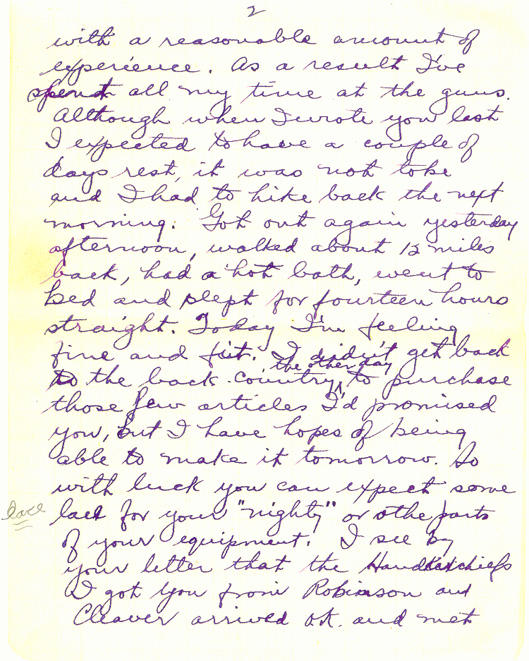 2
with a reasonable amount of
experience. As a result I've
spent all my time at the guns.
Although when I wrote you last
I expected to have a couple of
days rest, it was not to be
and I had to hike back the next
morning. Got out again yesterday
afternoon, walked about 12 miles
back, had a hot bath, went to
bed and slept for fourteen hours
straight. Today I'm feeling
fine and fit. I didn't get back
the other day
to the back country, to purchase
those few articles I'd promised
you, but I have hopes of being
able to make it tomorrow. So
with luck you can expect some
lace
lace for your "nighty" or other parts
of your equipment. I see by
your letter that the Handkerchiefs
I got you from Robinson and
Cleaver arrived O.K. and met